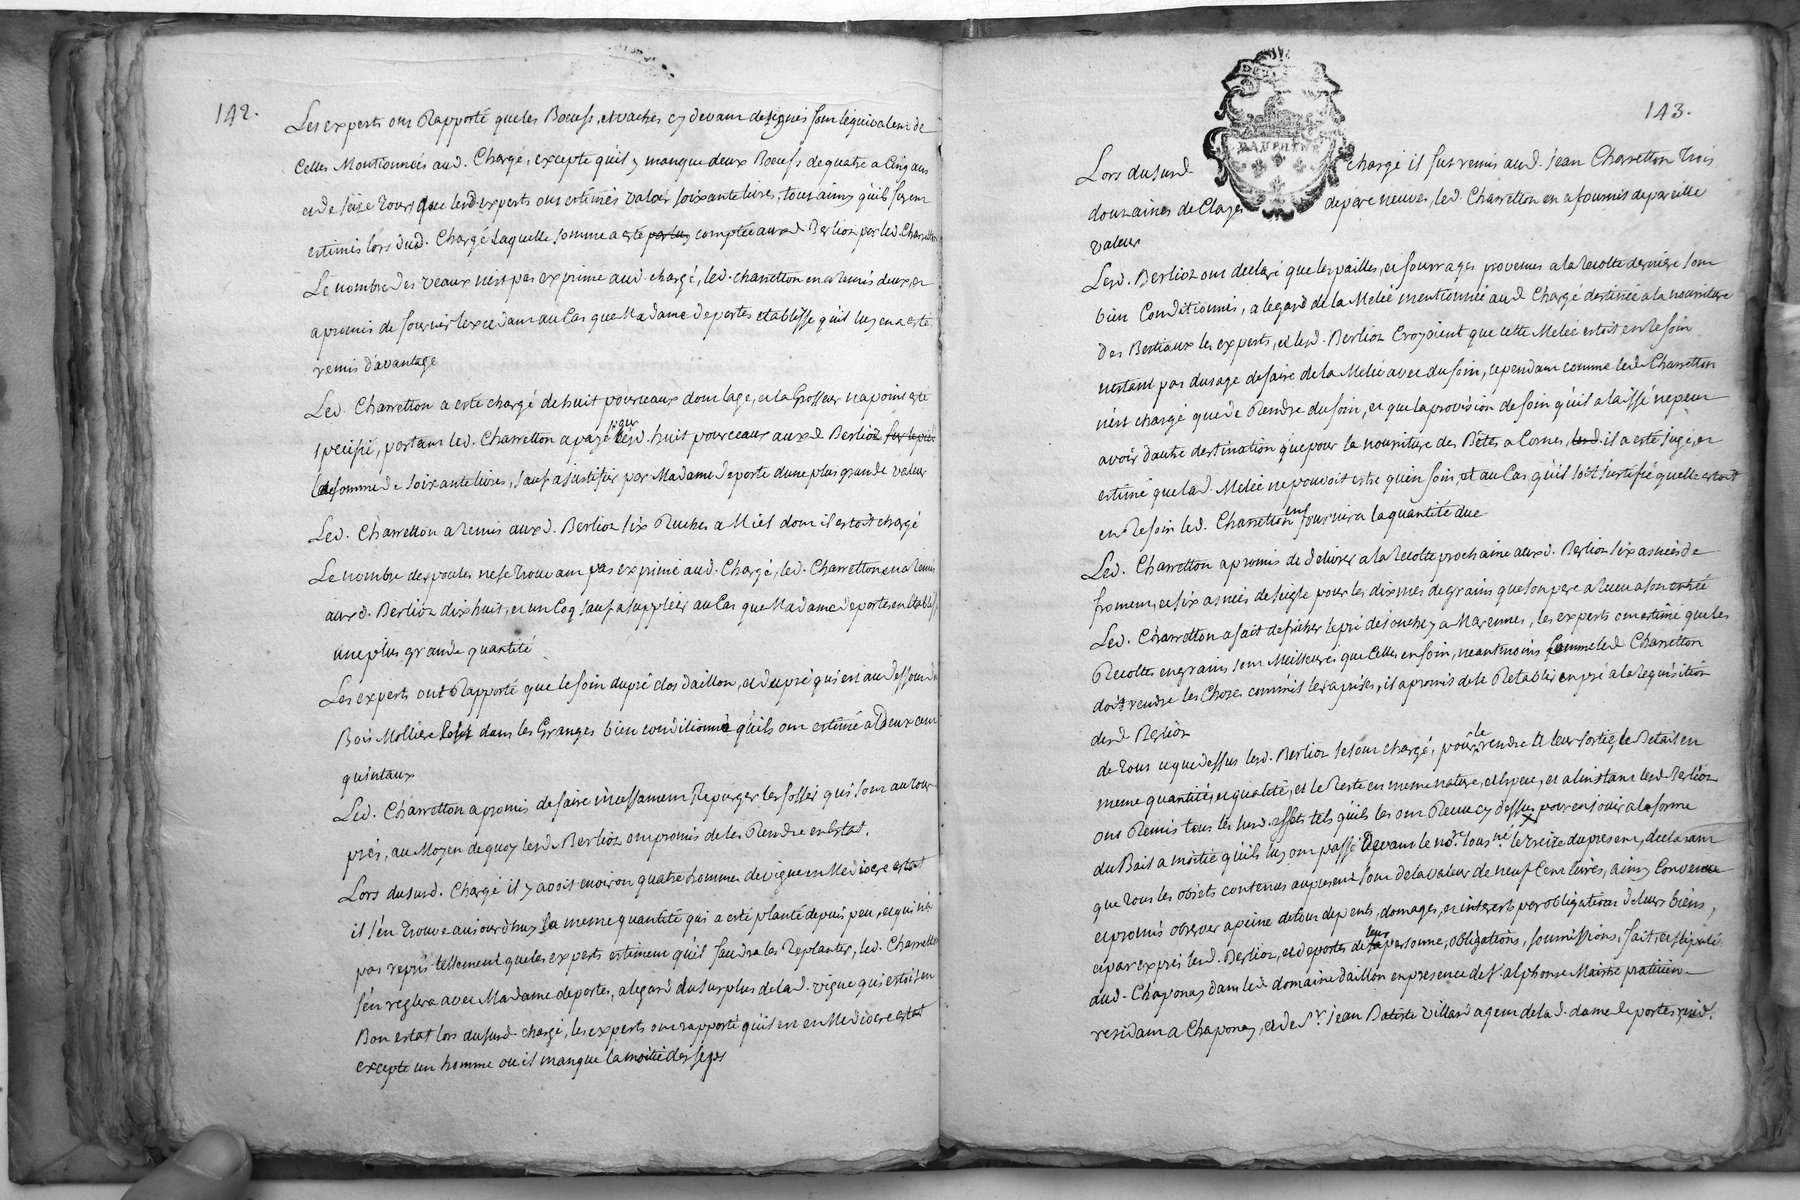 142.
Les experts ont Rapporté que les Boeufs, et vaches cy devant designés sont lequivalent de
Celles Mentionnées aud. Chargé, excepté qu'il y manque deux Boeufs de quatre a Cinq ans
et de seize Tours que lesd. experts ont estimés valoir soixante livres, tout ainsy qu'ils furent
estimés lors dud. Chargé Laquelle somme a esté comptée auxd Berlioz par led. Charretton
Le nombre des veaux n'est pas exprimé aud. chargé, led. charretton en a remis deux, et
a promis de fournir lexcedant au Cas que Madame deportes etablisse qu'il luy en a esté
remis d'avantage
Led. Charretton a esté chargé de huit pourceaux dont lage, et la Grosseur n'a point esté
specifié, partant led. Charretton a payé pour lesd. huit pourceaux auxd Berlioz sur le pié
la somme de soixante livres, sauf a justifier par Madame deporte dune plus grande valeur
Led. Charretton a Remis auxd. Berlioz six Ruches a Miel dont il estoit chargé
Le nombre des poules ne se trouvant pas exprimé aud. Chargé, led. Charretton en a remis
auxd. Berlioz dix huit, et un Coq sauf a suppléer au Cas que Madame deportes en Etablisse
une plus grande quantité
Les experts ont Rapporté que le foin du pré clos daillon, et du pré qui est au dessous du
Bois Molliere sont dans les Granges bien conditionné qu'ils ont estimé a Deux cent
quintaux
Led. Charretton a promis de faire incessament Repurger les fossés qui sont autour
prés, au Moyen de quoy lesd. Berlioz ont promis de les Rendre en Estat.
Lors du susd. Chargé il y avoit environ quatre hommes de vigne en Mediocre estat
il s'en trouve aujourd'huy la meme quantité qui a esté planté depuis peu, et qui n'a
pas repris tellement que les experts estiment qu'il faudra les Replanter, led. Charretton
s'en reglera avec Madame deportes, a legard du surplus de lad. vigne qui estoit en
Bon estat lors du susd. chargé, les experts ont rapporté qu'il est en Mediocre estat
excepté un homme ou il manque la moitié des seps
143.
DAUPHINE
Lors du susd. chargé il fut remis aud. Jean Charretton Trois
douzaines de Clayes de parc neuves, led. Charretton en a fournis de pareille
valeur
Lesd. Berlioz ont declaré que les pailles, et fourrages provenus a la recolte derniere sont
bien Conditionnés, a legard de la Melée mentionnée aud Chargé destinée a la nourriture
des Bestiaux les experts, et lesd. Berlioz Croyoient que cette Melée estoit en Refoin
nestant pas dusage de faire de la Melée avec du foin, cependant comme led Charretton
n'est chargé que de Rendre du foin, et que la provision de foin qu'il a laissé ne peut
avoir dautre destination que pour la nourriture des Bêtes a Cornes, lesd. il a esté jugé, et
estimé que lad Melée ne pouvoit estre qu'en foin, et au Cas qu'il soit justifié quelle estoit
en Refoin led. Charretton en fournira la quantité due
Led. Charretton a promis de delivrer a la recolte prochaine auxd. Berlioz six asnées de
froment, et six asnées de seigle pour les dixmes de grains que son pere a receu a son entrée
Led. Charretton a fait defricher le pré de souchey a Marennes, les experts ont estimé que les
Recoltes en grains sont Meilleures que Celles en foin, neantmoins comme led Charretton
doit rendre les Choses comme il les a prises, il a promis de le Retablir en pré a la Requisition
desd Berlioz
de tout ce que dessus lesd. Berlioz se sont chargé, pour le rendre a leur sortie, le Betail en
meme quantité, et qualité, et le Reste en meme nature, et espece, et a linstant lesd Berlioz
ont Remis tous les susd. effets tels qu'ils les ont Receu cy dessus pour en jouir a la forme
du Bail a moitié qu'ils luy ont passé Devant le no.re sous.né le treize du present, declarant
que tous les objets contenus au present sont de la valeur de neuf Cent livres, ainsy Convenu
et promis observer a peine de tous depents, domages, et interets par obligations de leurs biens,
et par exprés lesd. Berlioz, et deportes de leur personne, obligations, soumissions, fait, et stipulé
aud. Chaponay dans led domaine daillon en presence de s.r alphonse Maistre praticien
residant a Chaponay, et de s.r Jean Batiste Villard agent de lad. dame de portes resid.